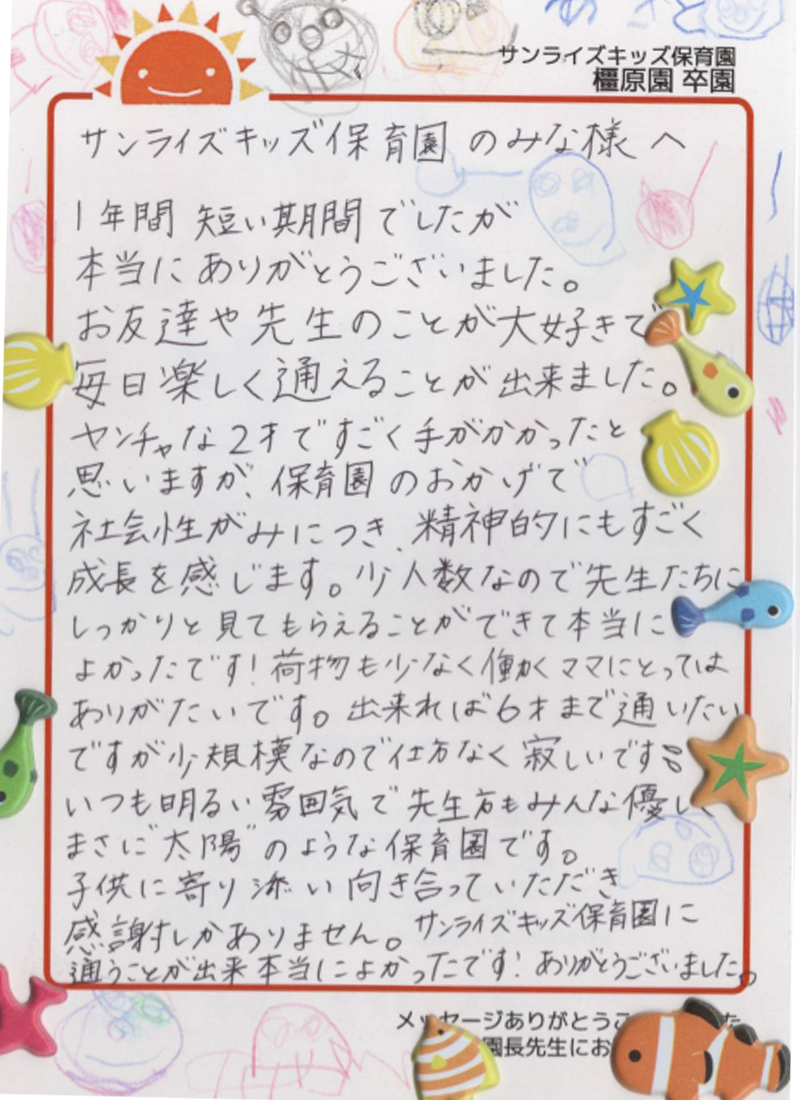 サンライズキッズ保育園
橿原園 卒園
サンライズキッズ保育園のみな様へ
1年間 短い期間でしたが
本当にありがとうございました。
お友達や先生のことが大好きで
毎日楽しく通えることが出来ました。
ヤンチャな2才ですごく手がかかったと
思いますが、保育園のおかげで
社会性がみにつき、精神的にもすごく
成長を感じます。少人数なので先生たちに
しっかりと見てもらえることができて本当に
よかったです!荷物も少なく働くママにとっては
ありがたいです。出来れば6才まで通いたい
ですが少規模なので仕方なく寂しいです
いつも明るい雰囲気で先生方もみんな優しく
まさに"太陽"のような保育園です。
子供に寄り添い向き合っていただき
感謝しかありません。サンライズキッズ保育園に
通うことが出来本当によかったです!ありがとうございました。
メッセージありがとうご た
園長先生にお